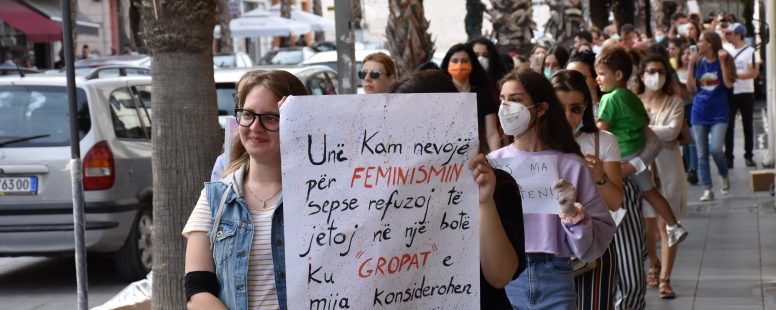 Unë Kam nevojë
për FEMINISMIN
sepse refuzoj të
jetoj në një botë
ku "GROPAT" e
mija konsiderohen
MA
63 00